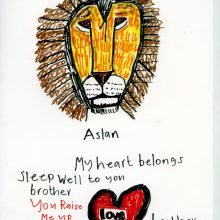 Aslan
My heart belongs
Sleep well to you
brother
You Raise
Me up
Love